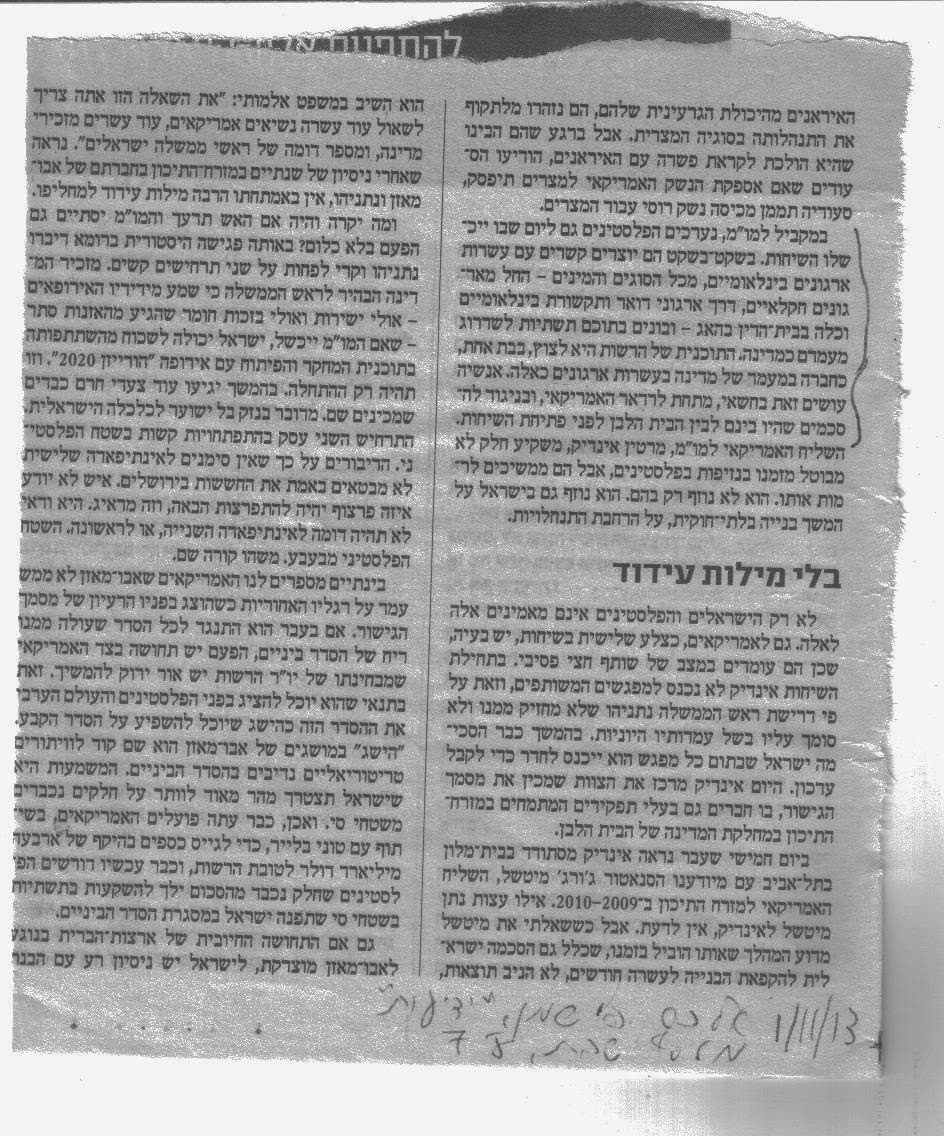 האיראנים מהיכולת הגרעינית שלהם, הם נזהרו מלתקוף
את התנהלותה בסוגיה המצרית. אבל ברגע שהם הבינו
שהיא הולכת לקראת פשרה עם האיראנים, הודיעו הס־
עודים שאם אספקת הנשק האמריקאי למצרים תיפסק,
סעודיה תממן מכיסה נשק רוסי עבור המצרים.
במקביל למו"מ, נערכים הפלסטינים גם ליום שבו ייכ־
שלו השיחות. בשקט־בשקט הם יוצרים קשרים עם עשרות
ארגונים בינלאומיים, מכל הסוגים והמינים – החל מאר־
גונים חקלאיים, דרך ארגוני דואר ותקשורת בינלאומיים
וכלה בבית־הדין בהאג – ובונים בתוכם תשתיות לשדרוג
מעמדם כמדינה. התוכנית של הרשות היא לצוץ, בבת אחת,
כחברה במעמד של מדינה בעשרות ארגונים כאלה. אנשיה
עושים זאת בחשאי, מתחת לרדאר האמריקאי, ובניגוד לה־
סכמים שהיו בינם לבין הבית הלבן לפני פתיחת השיחות.
השליח האמריקאי למו"מ, מרטין אינדיק, משקיע חלק לא
מבוטל מזמנו בנזיפות בפלסטינים, אבל הם ממשיכים לר־
מות אותו. הוא לא נוזף רק בהם. הוא נוזף גם בישראל על
המשך בנייה בלתי־חוקית, על הרחבת התנחלויות.
בלי מילות עידוד
לא רק הישראלים והפלסטינים אינם מאמינים אלה
לאלה. גם לאמריקאים, כצלע שלישית בשיחות, יש בעיה,
שכן הם עומדים במצב של שותף חצי פסיבי. בתחילת
השיחות אינדיק לא נכנס למפגשים המשותפים, וזאת על
פי דרישת ראש הממשלה נתניהו שלא מחזיק ממנו ולא
סומך עליו בשל עמדותיו היוניות. בהמשך כבר הסכי־
מה ישראל שבתום כל מפגש הוא ייכנס לחדר כדי לקבל
עדכון. היום אינדיק מרכז את הצוות שמכין את מסמך
הגישור, בו חברים גם בעלי תפקידים המתמחים במזרח־
התיכון במחלקת המדינה של הבית הלבן.
ביום חמישי שעבר נראה אינדיק מסתודד בבית־מלון
בתל־אביב עם מיודענו הסנאטור ג'ורג' מיטשל, השליח
האמריקאי למזרח התיכון ב־2009–2010. אילו עצות נתן
מיטשל לאינדיק, אין לדעת. אבל כששאלתי את מיטשל
מדוע המהלך שאותו הוביל בזמנו, שכלל גם הסכמה ישרא־
לית להקפאת הבנייה לעשרה חודשים, לא הניב תוצאות,
הוא השיב במשפט אלמותי: "את השאלה הזו אתה צריך
לשאול עוד עשרה נשיאים אמריקאים, עוד עשרים מזכירי
מדינה, ומספר דומה של ראשי ממשלה ישראלים". נראה
שאחרי ניסיון של שנתיים במזרח־התיכון בחברתם של אבו־
מאזן ונתניהו, אין באמתחתו הרבה מילות עידוד למחליפו.
ומה יקרה והיה אם האש תדעך והמו"מ יסתיים גם
הפעם בלא כלום? באותה פגישה היסטורית ברומא דיברו
נתניהו וקרי לפחות על שני תרחישים קשים. מזכיר המ־
דינה הבהיר לראש הממשלה כי שמע מידידיו האירופאים
– אולי ישירות ואולי בזכות חומר שהגיע מהאזנות סתר
– שאם המו"מ ייכשל, ישראל יכולה לשכוח מהשתתפותה
בתוכנית המחקר והפיתוח עם אירופה "הורייזן 2020". וזו
תהיה רק ההתחלה. בהמשך יגיעו עוד צעדי חרם כבדים
שמכינים שם. מדובר בנזק בל ישוער לכלכלה הישראלית.
התרחיש השני עסק בהתפתחויות קשות בשטח הפלסטי־
ני. הדיבורים על כך שאין סימנים לאינתיפאדה שלישית
לא מבטאים באמת את החששות בירושלים. איש לא יודע
איזה פרצוף יהיה להתפרצות הבאה, וזה מדאיג. היא ודאי
לא תהיה דומה לאינתיפאדה השנייה, או לראשונה. השטח
הפלסטיני מבעבע. משהו קורה שם.
בינתיים מספרים לנו האמריקאים שאבו־מאזן לא ממש
עמד על רגליו האחוריות כשהוצג בפניו הרעיון של מסמך
הגישור. אם בעבר הוא התנגד לכל הסדר שעולה ממנו
ריח של הסדר ביניים, הפעם יש תחושה בצד האמריקאי
שמבחינתו של יו"ר הרשות יש אור ירוק להמשיך. זאת
בתנאי שהוא יוכל להציג בפני הפלסטינים והעולם הערבי
את ההסדר הזה כהישג שיוכל להשפיע על הסדר הקבע.
"הישג" במושגים של אבו־מאזן הוא שם קוד לוויתורים
טריטוריאליים נדיבים בהסדר הביניים. המשמעות היא
שישראל תצטרך מהר מאוד לוותר על חלקים נכבדים
משטחי סי. ואכן, כבר עתה פועלים האמריקאים, בשי־
תוף עם טוני בלייר, כדי לגייס כספים בהיקף של ארבעה
מיליארד דולר לטובת הרשות, וכבר עכשיו דורשים הפ־
לסטינים שחלק נכבד מהסכום ילך להשקעות בתשתיות
בשטחי סי שתפנה ישראל במסגרת הסדר הביניים.
גם אם התחושה החיובית של ארצות־הברית בנוגע
לאבו־מאזן מוצדקת, לישראל יש ניסיון רע עם הבנת
1/11/13 אלכס פישמן, "ידיעות"
מוסף שבת, ע' 7